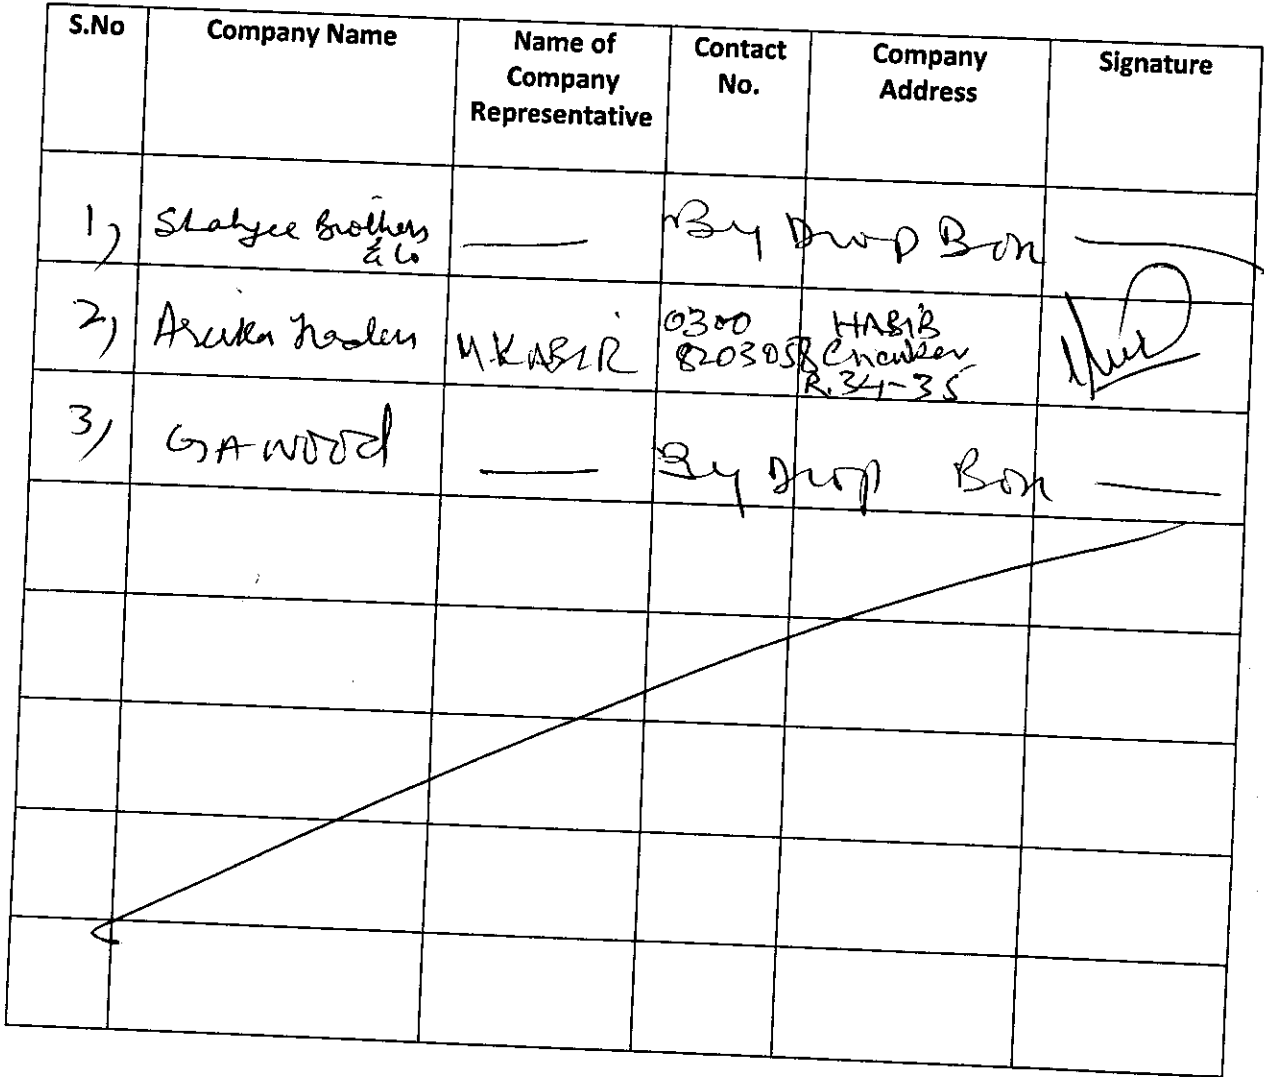 S.No Company Name Name of Company Representative Contact No. Company Address Signature
1) Shahjee Brothers & Co — By Drop Box —
2) Traders M. KABIR 0300 8203058 HABIB Chamber R. 34-35
3) GA WOOD — By Drop Box —